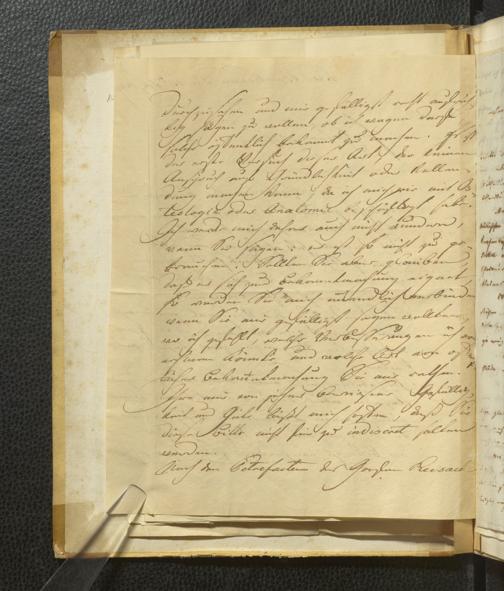 durchzusehen und mir gefälligst recht aufrich-
tig sagen zu wollen, ob ich wagen darf
solche öffentlich bekannt zu machen. Es ist
der erste Versuch dieser Art, der keinen
Anspruch auf Gründlichkeit oder Vollen-
dung machen kann, da ich mich nie mit O-
steologie oder Anatomie beschäftigt habe.
Ich werde mich daher auch nicht wundern,
wenn Sie sagen: es ist so nicht zu ge-
brauchen. Sollten Sie aber glauben
daß es sich zur Bekanntmachung eignet
so werden Sie mich unendlich verbinden
wenn Sie mir gefälligst sagen wollten,
wo ich gefehlt, welche Verbesserungen ich
machen könnte und welche Art von öffent-
licher Bekanntmachung Sie mir rathen.
Ihre mir von jeher bewiesene Gefällig-
keit und Güte läßt mich hoffen, daß Sie
diese Bitte nicht für zu indiscret halten
werden.
Nach den Petrefacten des Grafen Razoumow-